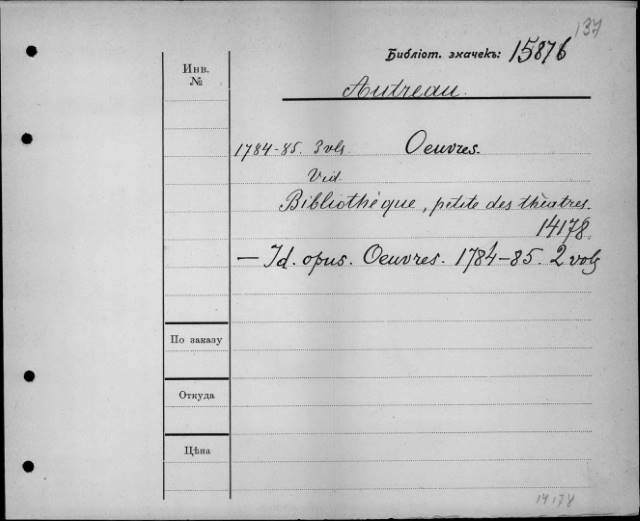 137
Библіот. значекъ: 15876
Инв.
№
Autreau.
1784-85. 3 vls Oeuvres.
Vid.
Bibliothéque, petite des théatres.
14178
— Id. opus. Oeuvres. 1784-85. 2 vols
По заказу
Откуда
Цѣна
14178